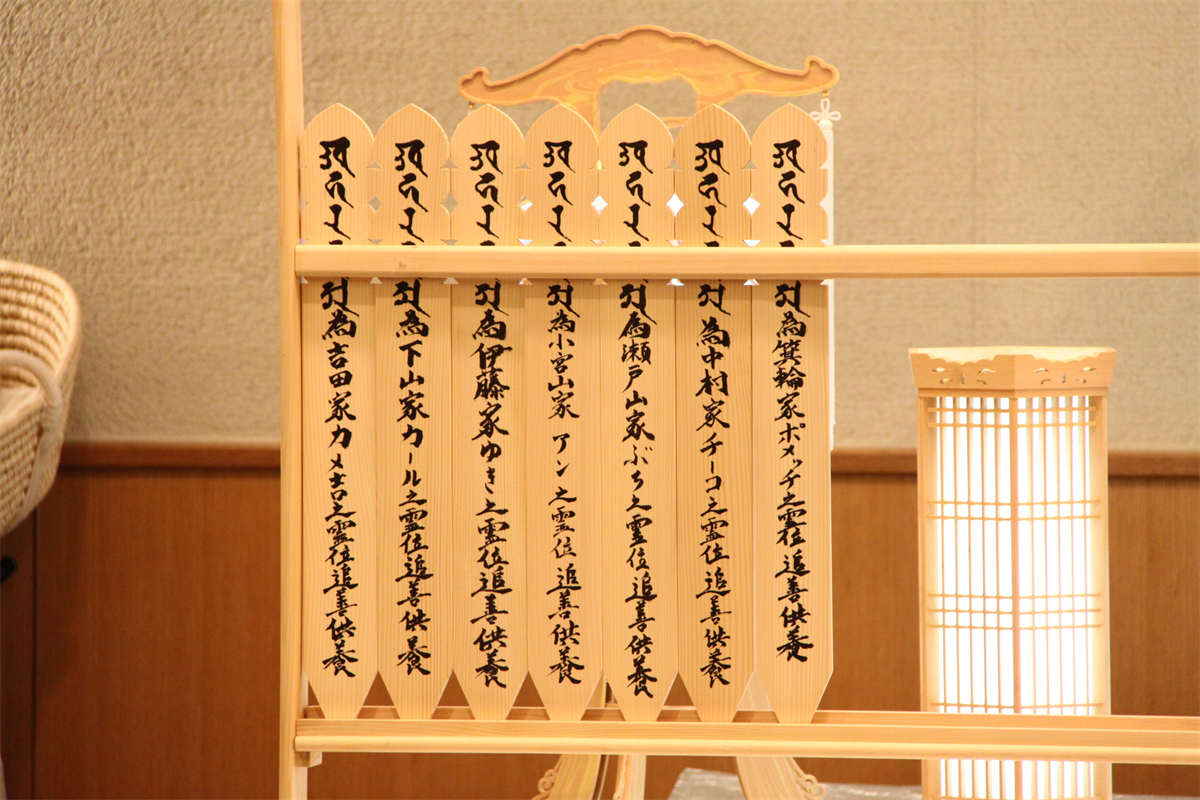 為箕輪家ポメッチ之霊位追善供養
為中村家チーコ之霊位追善供養
為瀬戸山家ぶち之霊位追善供養
為小宮山家アン之霊位追善供養
為伊藤家ゆき之霊位追善供養
為下山家カール之霊位追善供養
為吉田家之霊位追善供養